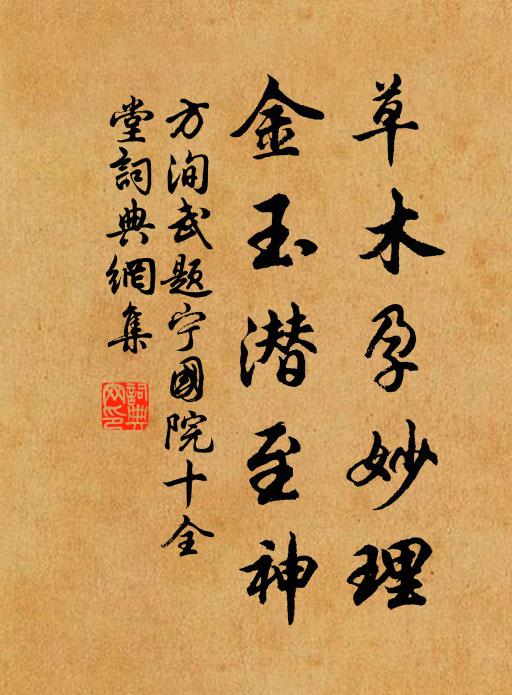 草木孕妙理
金玉潜至神
方洵武题宁國院十全
堂詞典網集
詞典網印